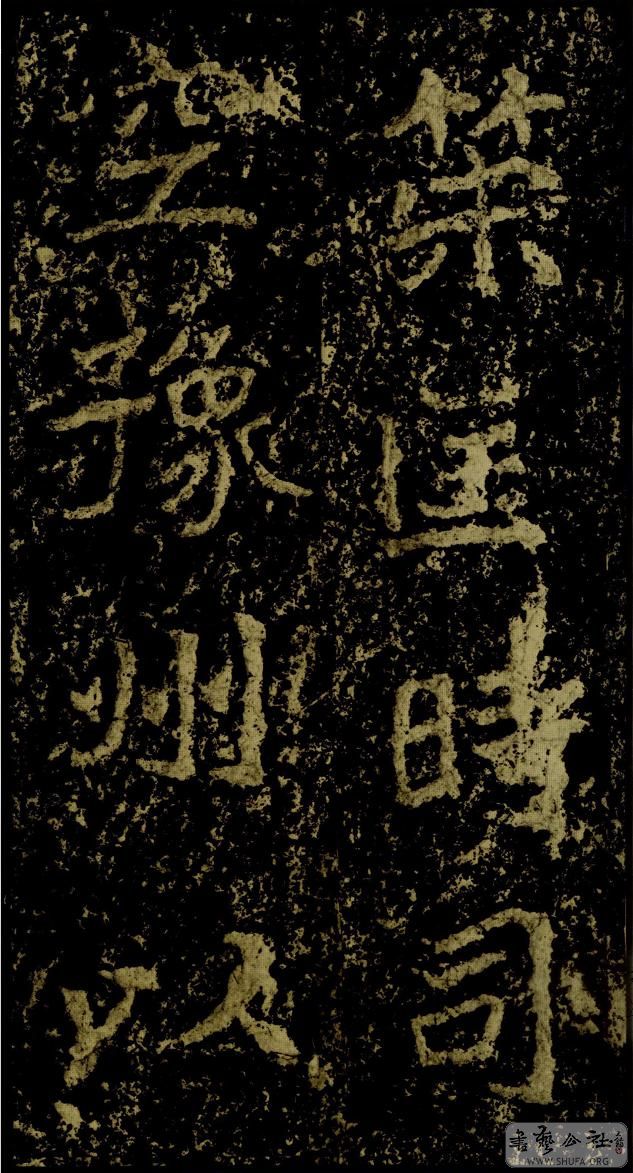 策匡時司
空豫州以
書藝公社
WWW.SHUFA.ORG